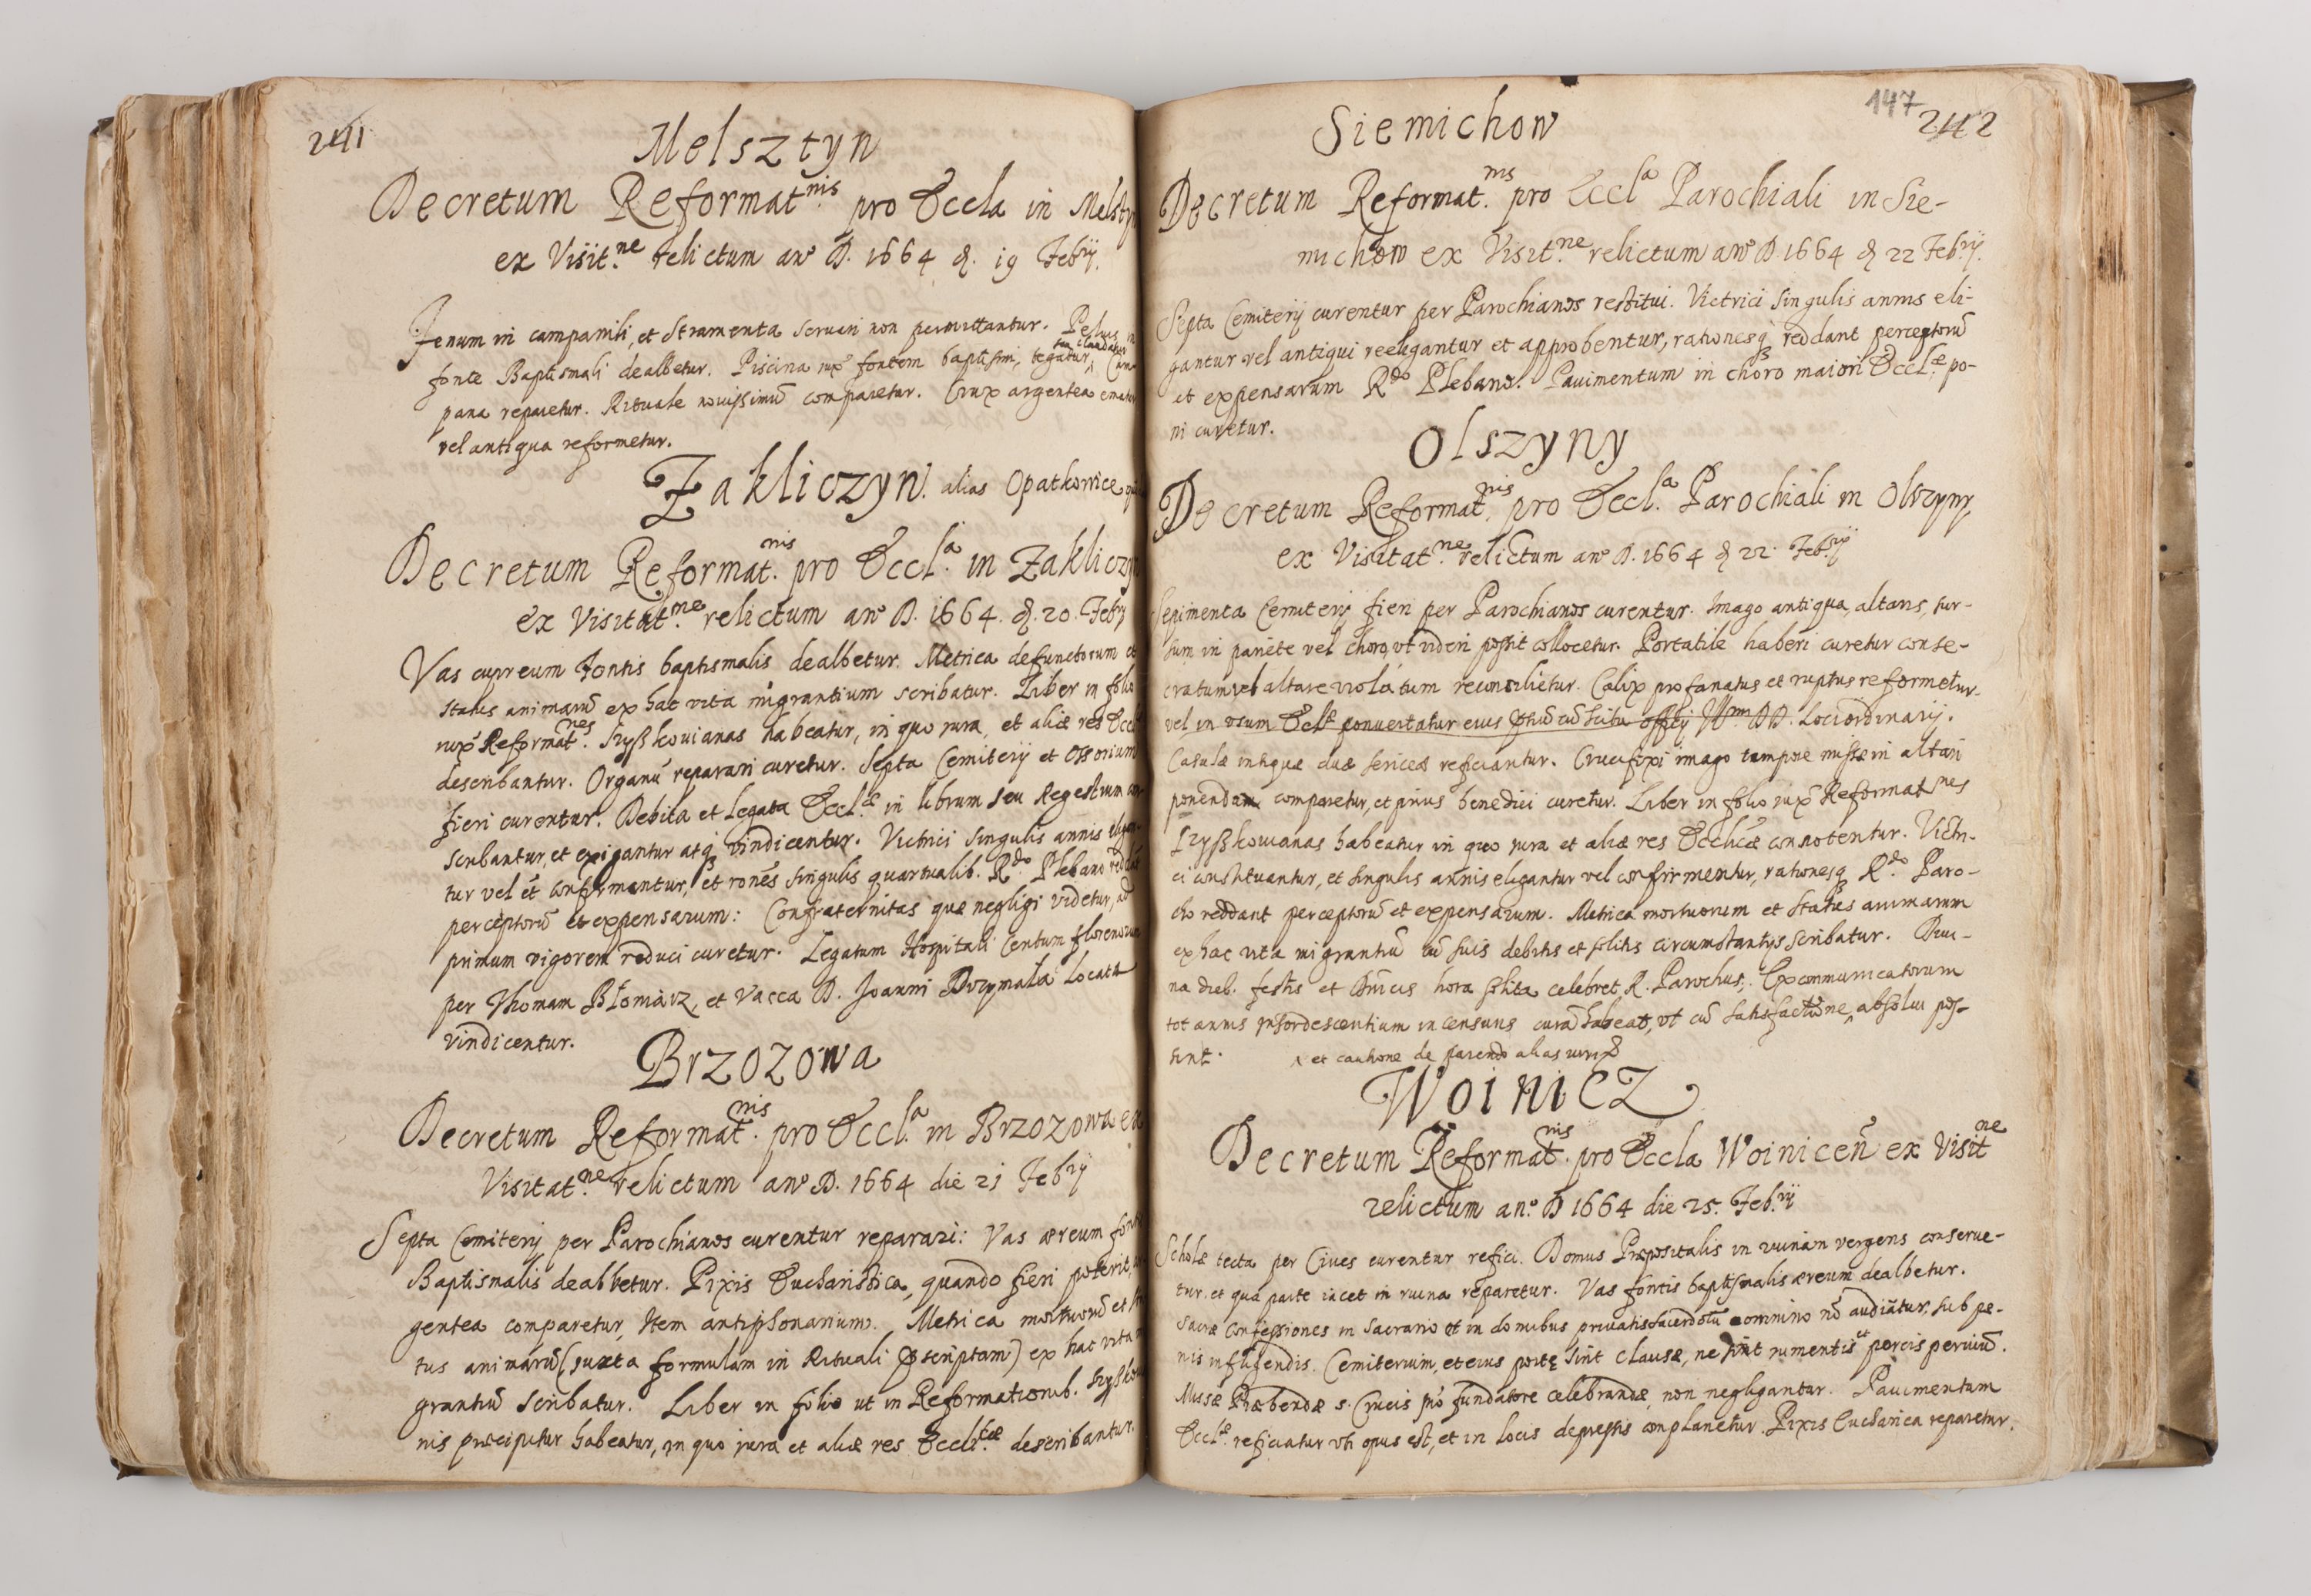 241
Melsztyn
Decretum Reformat.nis pro Eccla in Melszty
ex Visit.ne relictum an° D. 1664 d. 19 Feb.rij
Fenum in campanili, et stramenta seruari non permittantur. Peluis in
fonte Baptismali dealbetur. Piscina iux° fontem baptismi, tegatur, Cam
pana reparetur. Rituale nouissimū comparetur. Crux argentea ematur
vel antiqua reformetur.
Zakliczyn. alias Opatkowice
Decretum Reformat.nis pro Eccl.a in Zakliczyn
ex Visitat.ne relictum an° D. 1664. d. 20. Feb.rij
Vas cupreum Fontis baptismalis dealbetur. Metrica defunctorum et
status animarū ex hac vita migrantium scribatur. Liber in folio
iux° Reformat.nes Szyszkouianas habeatur, in quo iura, et aliæ res Eccl
describantur. Organū reparari curetur. Septa Cemiterij et Ossorium
fieri curentur. Debita et Legata Eccl.æ in librum seu Regestrum con
scribantur, et exigantur atq3 vindicentur. Victrici singulis annis eligan
tur vel et confirmentur, et rones singulis quartualib. R.do Plebano reddāt
perceptorū et expensarum: Confraternitas quæ negligi videtur, ad
primum vigorem reduci curetur. Legatum Hospitali Centum florenorum
per Thomam Błomarz, et Vacca D. Joanni Drzymała Locata
vindicentur.
Brzozowa
Decretum Reformat.nis pro Eccl.a in Brzozowa ex
Visitat.ne relictum an° D. 1664 die 21 Feb.rij
Septa Cemiterij per Parochianos curentur reparari: Vas æreum fonti
Baptismalis dealbetur. Pixis Eucharistica, quando fieri poterit, ar
gentea comparetur, Item antiphonarium. Metrica mortuorū et sta
tus animarū (iuxta formulam in Rituali p̄scriptam) ex hac vita mi
grantiū scribatur. Liber in folio ut in Reformationib. Szyszkouia
nis præcipitur habeatur, in quo iura et aliæ res Eccli.cæ describantur.
147
242
Siemichow
Decretum Reformat.nis pro Eccl.a Parochiali in Sie-
michow ex Visit.ne relictum an° D. 1664 d 22 Feb.rij
Septa Cemiterij curentur per Parochianos restitui. Victrici singulis annis eli-
gantur vel antiqui reeligantur et approbentur, rationesq3 reddant perceptorū
et expensarum R.do Plebano. Pauimentum in choro maiori Eccl.æ po-
ni curetur.
Olszyny
Decretum Reformat.nis pro Eccl.a Parochiali in Olszyny
ex Visitat.ne relictum an° D. 1664 d 22. Feb.rij
Sepimenta Cemiterij fieri per Parochianos curentur. Imago antiqua, altaris, sur-
sum in pariete vel choro, vt videri possit collocetur. Portatile haberi curetur conse-
cratum vel altare violatum reconcilietur. Calix profanatus et ruptus reformetur
vel in vsum Eccl.æ conuertatur eius cū scitu officij Loci ordinarij.
Casulæ antiquæ duæ sericeæ reficiantur. Crucifixi imago tempore missæ in altari
ponenda comparetur, et prius benedici curetur. Liber in folio iux° Reformat.nes
Szyszkouianas habeatur in quo iura et aliæ res Eccl.icæ connotentur. Victri-
ci constituantur, et singulis annis eligantur vel confirmentur, rationesq3 R.do Paro-
cho reddant perceptorū et expensarum. Metrica mortuorum et status animarum
ex hac vita migrantiū cū suis debitis et solitis circumstantijs scribatur. Diui-
na dieb. festis et Dnicis hora solita celebret R. Parochus. Excommunicatorum
tot annis insordescentium in censuris curā habeat, vt cū satisfactione, absolui pos-
sint. et cautione de parendo alias iuri
Woinicz
Decretum Reformat.nis pro Eccla Woinicen̄ ex Visit.ne
relictum an.° D 1664 die 25. Feb.rij
Scholæ tecta per Ciues curentur refici. Domus Præpositalis in ruinam vergens conserue-
tur, et qua parte iacet in ruina reparetur. Vas fontis baptismalis æreum dealbetur.
Sacræ Confessiones in Sacrario et in domibus priuatis sacerdotū omnino nō audiātur, sub pæ-
nis infligendis. Cemiterium, et eius portę sint clausæ, ne sint iumentis et porcis peruiū.
Missæ Præbendæ s. Crucis pro fundatore celebrandæ, non negligantur. Pauimentum
Eccl.æ reficiatur vti opus est, et in locis depressis complanetur. Pixis Eucharica reparetur.